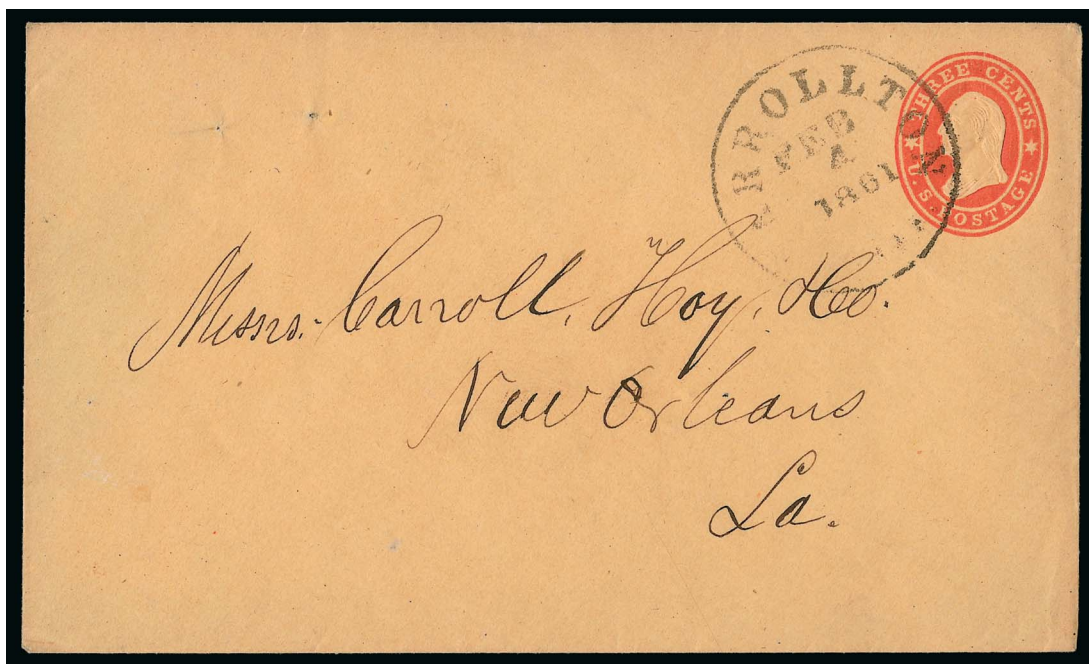 RROLLTON
FEB
4
1861
THREE CENTS
U.S. POSTAGE
Messrs. Carroll, Hoy, & Co.
New Orleans
La.